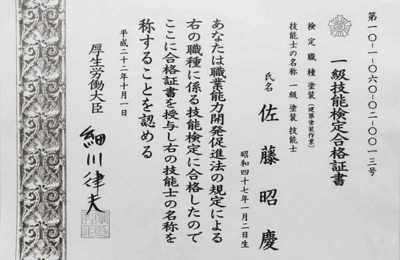 第一〇-一-〇六〇-〇二-〇〇一三号
一級技能検定合格証書
検定職種 塗装（建築塗装作業）
技能士の名称 一級 塗装 技能士
氏名 佐藤昭慶
昭和四十七年一月二日生
あなたは職業能力開発促進法の規定による
右の職種に係る技能検定に合格したので
ここに合格証書を授与し右の技能士の名称を
称することを認める
平成二十二年十月一日
厚生労働大臣 細川律夫